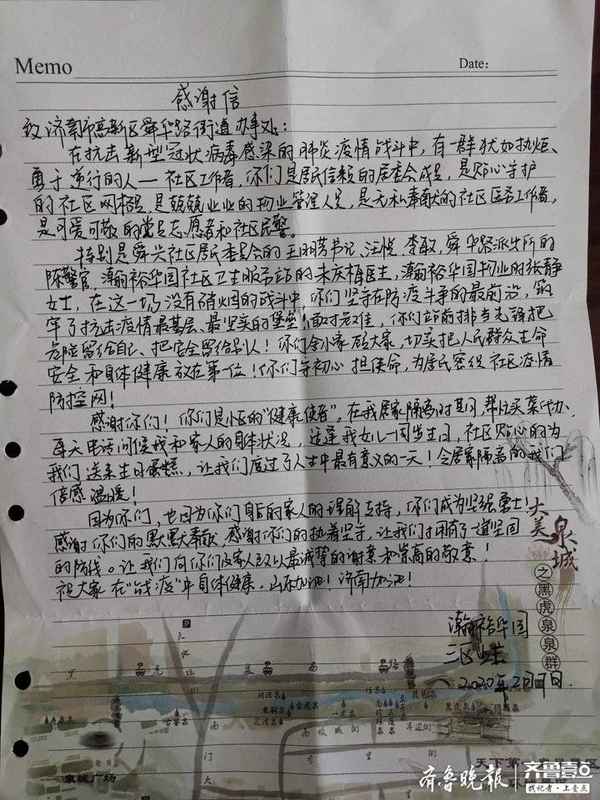 Memo
Date:
感谢信
致济南市高新区舜华路街道办事处:
在抗击新型冠状病毒感染的肺炎疫情战斗中,有一群犹如执炬、
勇于逆行的人——社区工作者,你们是居民信赖的居委会成员,是贴心守护
的社区网格员,是兢兢业业的物业管理人员,是无私奉献的社区医务工作者,
是可爱可敬的党员志愿者和社区民警。
特别是舜兴社区居民委员会的王丽芳书记、汪悦、李敏,舜华路派出所的
陈警官,瀚裕华园社区卫生服务站的朱庆梅医生,瀚裕华园物业的张静
女士,在这一场没有硝烟的战斗中,你们坚守在防疫斗争的最前沿,筑
牢了抗击疫情最基层、最坚实的堡垒!面对艰难,你们站前排当先锋把
危险留给自己、把安全留给别人!你们舍小家顾大家,切实把人民群众生命
安全和身体健康放在第一位!你们守初心担使命,为居民密织社区疫情
防控网!
感谢你们!你们是小区的"健康使者",在我居家隔离的时间帮忙买菜代办、
每天电话问候我和家人的身体状况,适逢我女儿一周岁生日,社区贴心的为
我们送来生日蛋糕,让我们度过了人生中最有意义的一天!令居家隔离的我们
倍感温暖!
因为你们,也因为你们身后的家人的理解支持,你们成为坚强勇士!
感谢你们的默默奉献,感谢你们的执着坚守,让我们拥有了一道坚固
的防线。让我们向你们及家人致以最诚挚的谢意和崇高的敬意!
祝大家在"战疫"中身体健康。山东加油!济南加油!
瀚裕华园
2020年2月
大美泉城
之黑虎泉泉群
泉城广场
天下第
齐鲁晚报
齐鲁壹点
找记者·上壹点